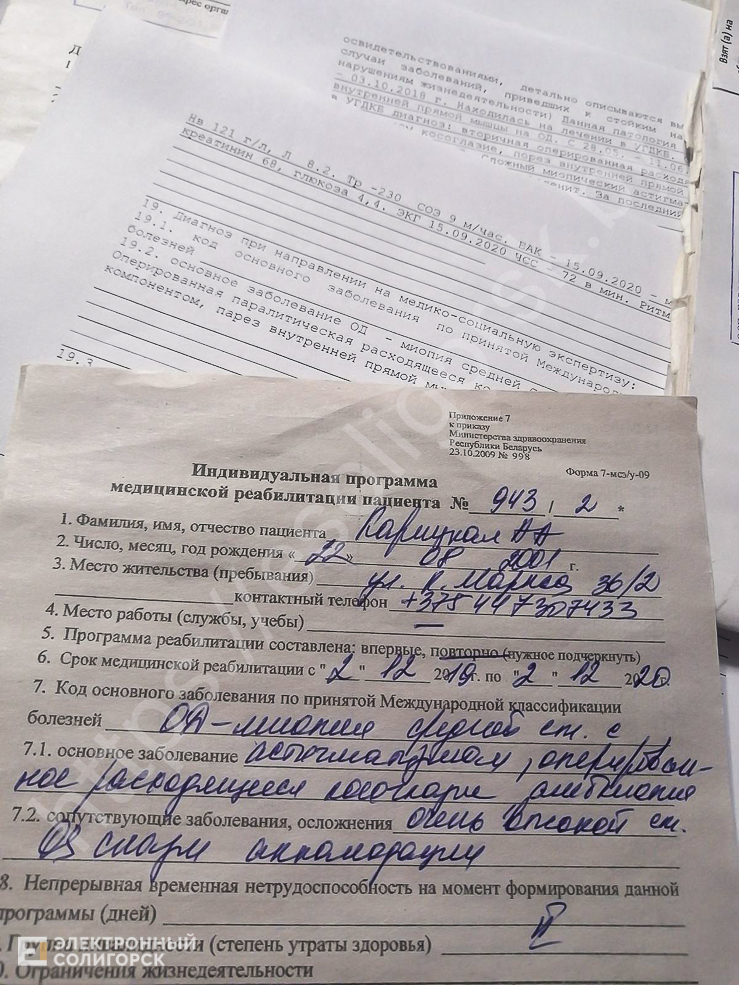 рес орга
Взят (а) на
освидетельствованиями, детально описываются вы
случаи заболеваний, приведших к стойким на
нарушениям жизнедеятельности) Данная патология
- 03.10.2018 г. Находилась на лечении в УГДКБ.
внутренней прямой мышцы на ОД. С 28.05. - 11.06
в УГДКБ диагноз: вторичная оперированная расход
косоглазие, парез внутренней прямой
сложный миопический астигма
За последний
Нв 121 г/л, Л 8.2. Тр -230 СОЭ 9 м/час. БАК - 15.09.2020 - м
креатинин 68, глюкоза 4,4. ЭКГ 15.09.2020 ЧСС - 72 в мин. Ритм
19. Диагноз при направлении на медико-социальную экспертизу:
19.1. код основного заболевания по принятой Международ
болезней
19.2. основное заболевание ОД - миопия средней с
Оперированная паралитическая расходящееся ко
компонентом, парез внутренней прямой мы
19.3
Приложение 7
к приказу
Министерства здравоохранения
Республики Беларусь
23.10.2009 № 998
Форма 7-мсэ/у-09
Индивидуальная программа
медицинской реабилитации пациента № 943 / 2 *
1. Фамилия, имя, отчество пациента Карицкая АА
2. Число, месяц, год рождения « 22 » 08 2001 г.
3. Место жительства (пребывания) ул. К. Маркса 36/2
контактный телефон +375447307433
4. Место работы (службы, учебы) —
5. Программа реабилитации составлена: впервые, повторно (нужное подчеркнуть)
6. Срок медицинской реабилитации с "2" 12 2019г. по "2" 12 2020г.
7. Код основного заболевания по принятой Международной классификации
болезней ОД-миопия средней ст. с
7.1. основное заболевание астигматизмом, оперирован-
ное расходящееся косоглазие амблиопия
7.2. сопутствующие заболевания, осложнения очень высокой ст.
OS спазм аккомодации
8. Непрерывная временная нетрудоспособность на момент формирования данной
программы (дней)
(степень утраты здоровья) II
0. Ограничения жизнедеятельности
ЭЛЕКТРОННЫЙ
СОЛИГОРСК